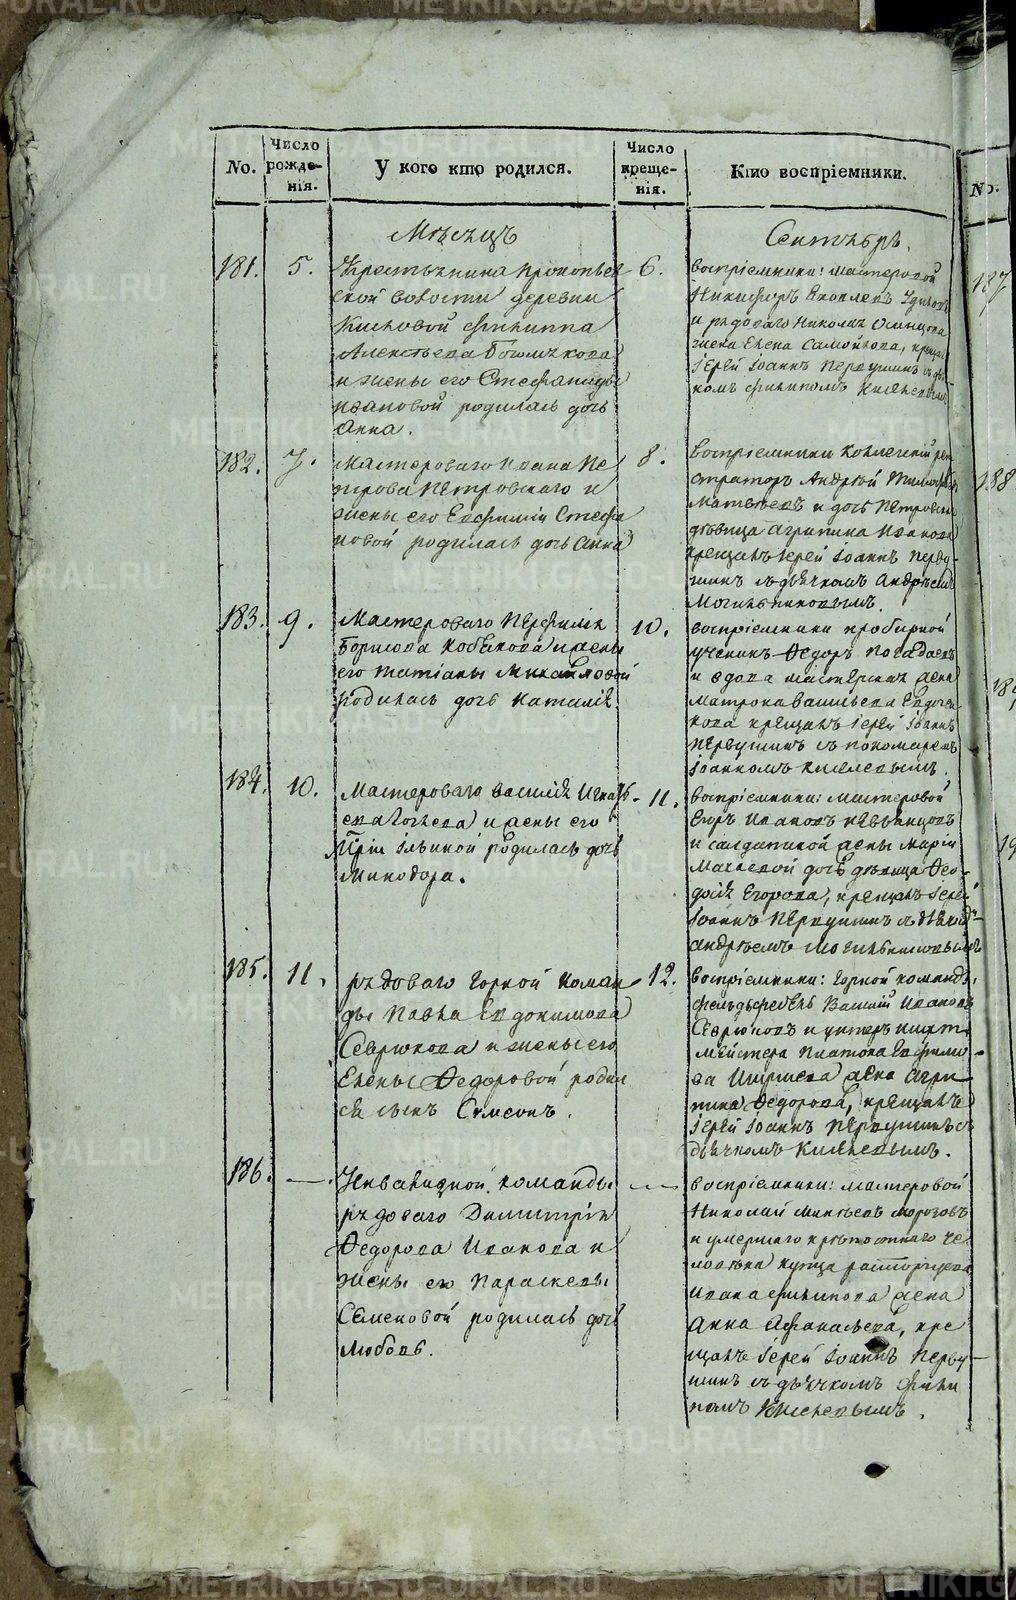 No.
Число рожде-нія.
У кого кто родился.
Число креще-нія.
Кто воспріемники.
No.
Мѣсяцъ
Сентябрь.
181.
5.
Крестьянина
ской волости деревни
Филиппа
Алексѣева
и жены его Стефаниды
Ивановой родилась дочь
Анна.
6.
воспріемники: мастеровой
Никифоръ Яковлевъ
и рядоваго Николая
жена Елена Самойлова,
Іерей Іоаннъ Первушинъ съ
комъ Филипомъ
182.
7.
Мастероваго Ивана Пе
трова Петровскаго и
жены его Евфиміи Стефа
новой родилась дочь Анна
8.
Воспріемники
страторъ Андрей
Матвеевъ и дочь
дѣвица Агрипина Иванова
крещалъ Іерей Іоаннъ Перву-
шинъ съ дьячкомъ Андреемъ
Могильниковымъ.
183.
9.
Мастероваго Перфилія
Борисова и жены
его Татіаны Михайловой
родилась дочь Наталія
10.
воспріемники пробирной
ученикъ Ѳедоръ
и вдова мастерская жена
Матрона Васильева
кова крещалъ Іерей Іоаннъ
Первушинъ съ пономаремъ
Іоанномъ Киселевымъ.
184.
10.
Мастероваго Василія Игнать
ева и жены его
Маріи Ильиной родилась дочь
Минодора.
11.
воспріемники: мастеровой
Егоръ Ивановъ Невьянцовъ
и салдатской жены Маріи
дочь дѣвица Ѳео-
досія Егорова, крещалъ Іерей
Іоаннъ Первушинъ съ
Андреемъ Могильниковымъ
185.
11.
рядоваго Горной Коман
ды Павла Евдокимова
Севрюкова и жены его
Елены Ѳедоровой родил
ся сынъ Симеонъ.
12.
воспріемники: Горной команды
Василій Ивановъ
Севрюковъ и унтеръ шихт
мейстера Платона Евфимо-
ва жена Агри-
пина Ѳедорова, крещалъ
Іерей Іоаннъ Первушинъ съ
дьячкомъ Киселевымъ.
186.
—
Инвалидной команды
рядоваго Димитрія
Ѳедорова Иванова и
жены его Параскевы
Семеновой родилась дочь
Любовь.
—
воспріемники: мастеровой
Николай Морозовъ
и умершаго крѣпостнаго че
ловѣка купца Расторгуева
Ивана Филипова жена
Анна Афанасьева, кре
щалъ Іерей Іоаннъ Перву-
шинъ съ дьячкомъ Фили
помъ Киселевымъ.
187
188
METRIKI.GASO-URAL.RU